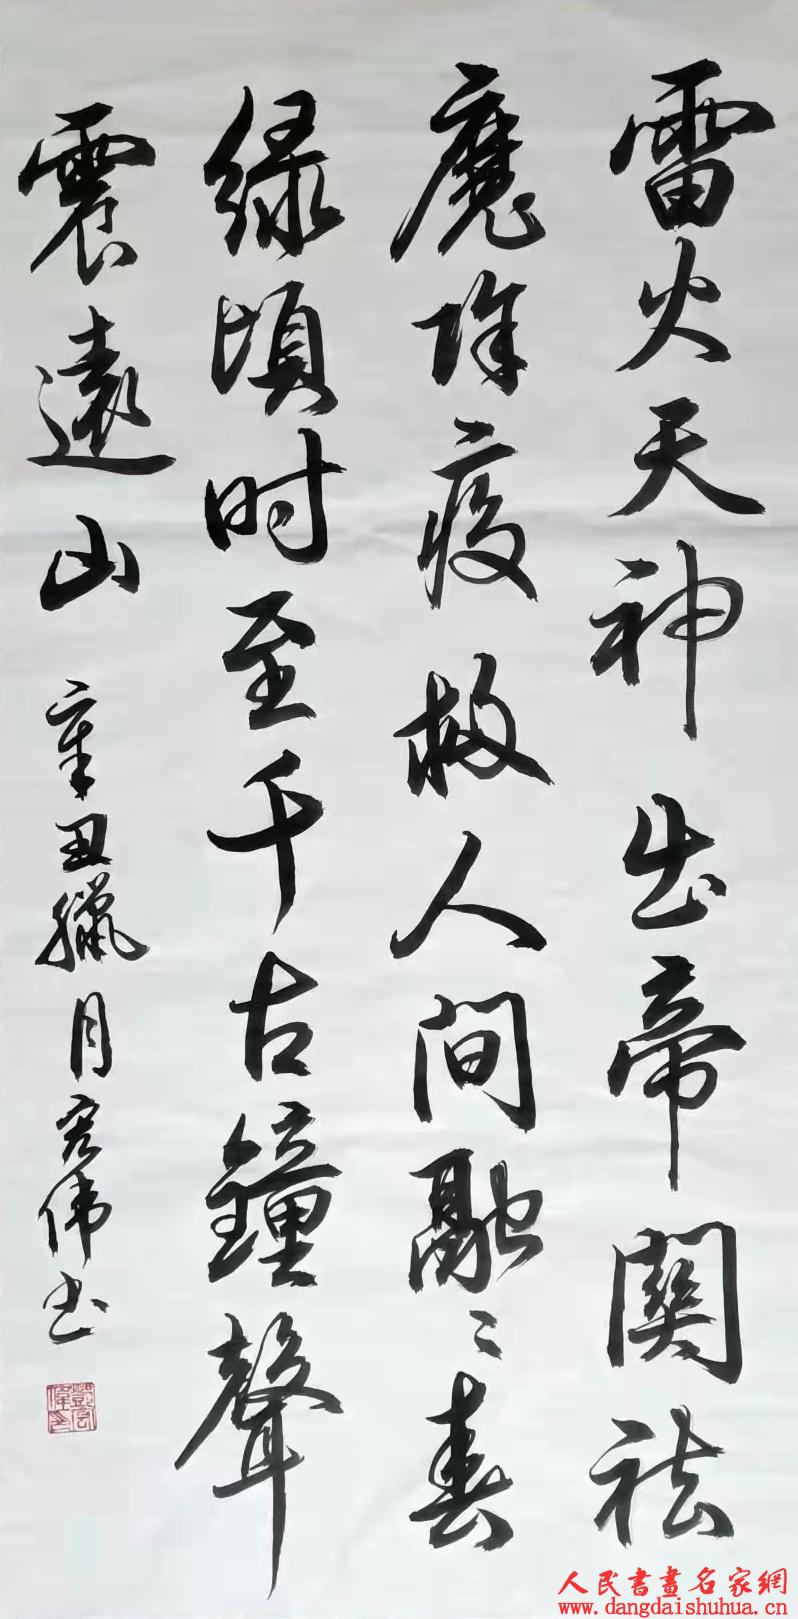 雷火天神出帝關袪
魔降疫救人间融〻春
绿頃时至千古鐘聲
震遠山
辛丑臘月宏伟书
人民書畫名家網
www.dangdaishuhua.cn